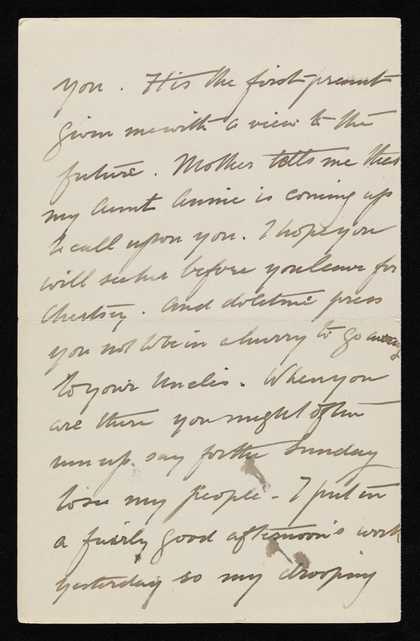 you. It is the first present
given me with a view to the
future. Mother tells me that
my Aunt Annie is coming up
to call upon you. I hope you
will see her before you leave for
Chertsey. And do let me press
you not to be in a hurry to go away
to your Uncle's. When you
are there you might often
run up, say for the Sunday
to see my people - I put in
a fairly good afternoon's work
yesterday so my drooping